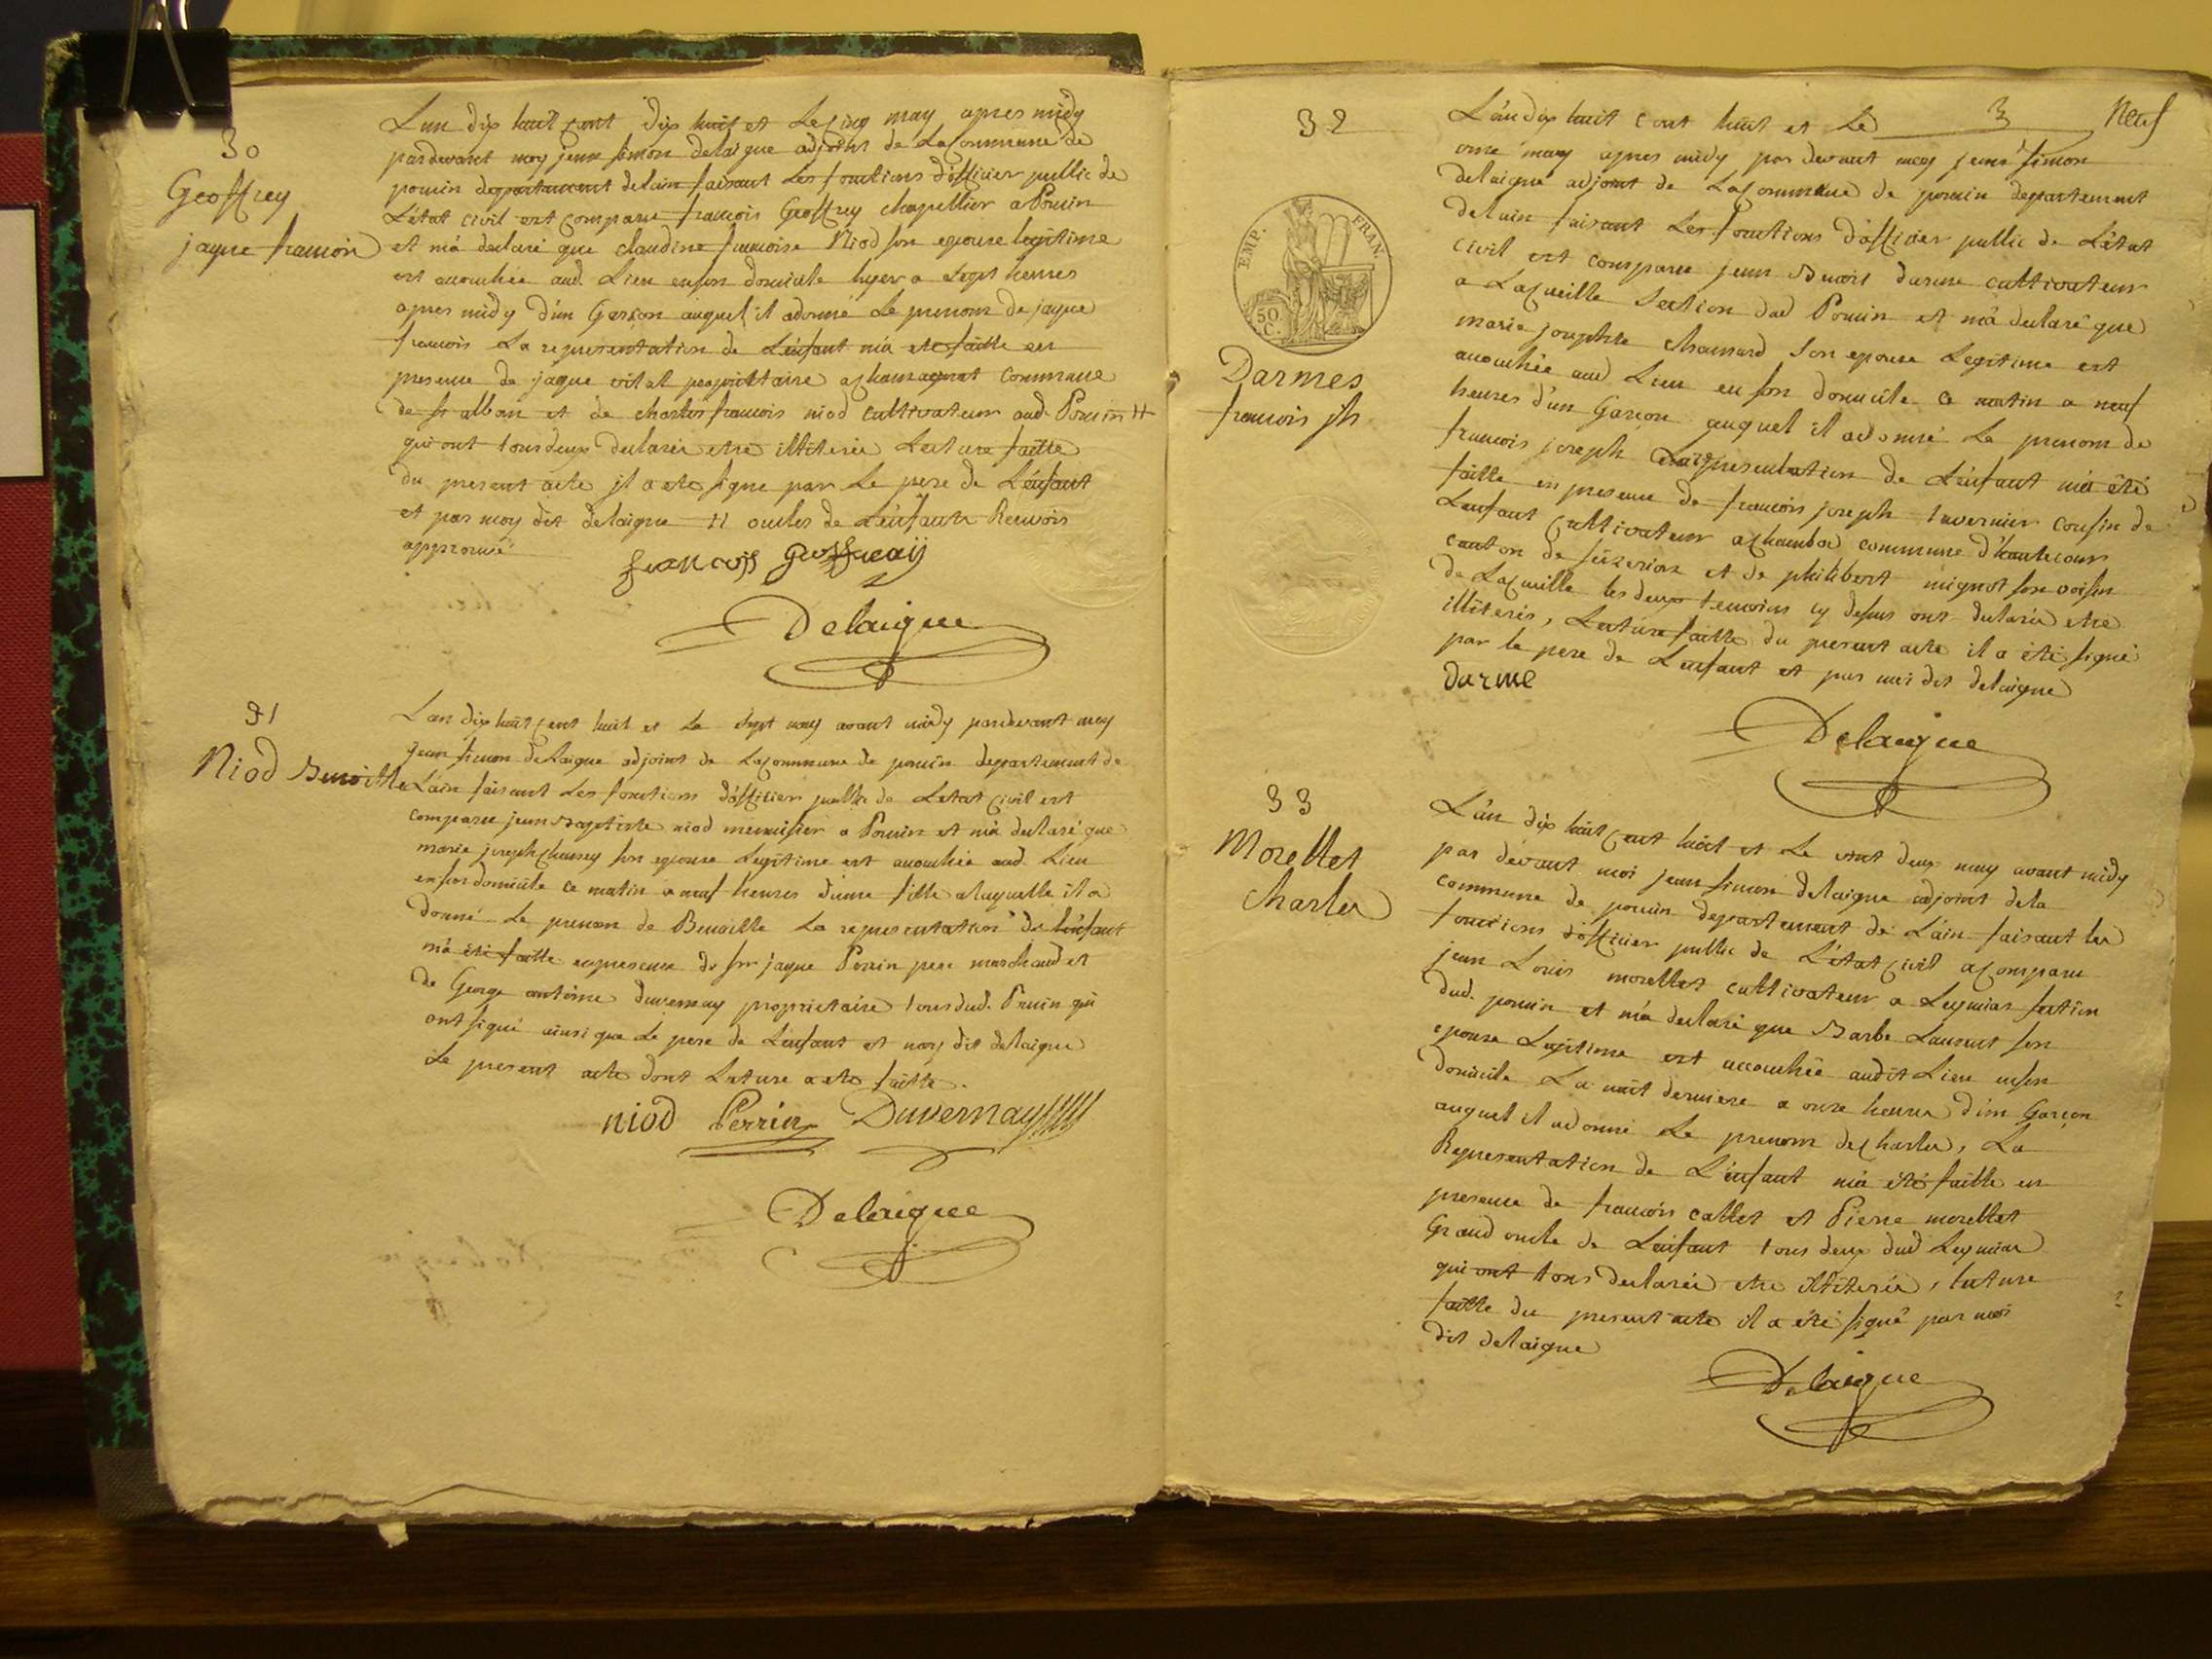 30
Geoffrey
jaque francois
L'an dix huit cent dix huit et le cinq may apres midy
pardevant moy jean simon delaigue adjoint de la commune de
poncin departement de lain faisant les fonctions d'officier public de
L'état civil est comparu francois Geoffrey chapellier a Poncin
et m'a declaré que claudine francoise Niod son epouse legitime
est accouchée aud. Lieu en son domicile hyer a sept heures
apres midy d'un Garcon auquel il a donné le prenom de jaque
francois La representation de L'enfant m'a été faitte en
presence de jaque vital proprietaire a commune
de st alban et de charles francois niod cultivateur aud. Poncin #
qui ont tous deux declarés etre illiterés Lecture faitte
du present acte il a été signé par Le pere de L'enfant
et par moy dit delaigue # oncles de L'enfant Renvois
approuvé
francois Geoffreaÿ
Delaigue
31
Niod Benoitte
L'an dix huit cent huit et Le sept may avant midy pardevant moy
jean simon delaigue adjoint de La commune de poncin departement de
L'ain faisant Les fonctions d'officier public de L'etat civil est
comparu jean Baptiste niod menuisier a Poncin et m'a declaré que
marie joseph son epouse Legitime est accouchée aud. Lieu
en son domicile ce matin a neuf heures d'une fille a laquelle il a
donné Le prenom de Benoitte La representation de l'enfant
m'a été faitte en presence de sr jaque Perrin pere marchand et
de George antoine duvernay proprietaire tous dud. Poncin qui
ont signé ainsi que Le pere de L'enfant et moy dit delaigue
Le present acte dont Lecture a été faitte.
niod Perrin Duvernay
Delaigue
32
EMP. FRAN.
50 C.
Darmes
francois jh
L'an dix huit cent huit et Le 3 Neuf
onze may apres midy par devant moy jean simon
delaigue adjoint de La commune de poncin departement
de Lain faisant Les fonctions d'officier public de L'état
civil est comparu jean Benoit darme cultivateur
a La cueille Section dud Poncin et m'a declaré que
marie josephte chamard son epouse Legitime est
accouchée aud Lieu en son domicile ce matin a neuf
heures d'un Garcon auquel il a donné Le prenom de
francois joseph La representation de L'enfant m'a été
faitte en presence de francois joseph tavernier cousin de
L'enfant cultivateur a chambod commune d'hautecour
canton de seizeriat et de philibert mignot son voisin
de La cueille les deux temoins cy dessus ont declarés etre
illiterés, Lecture faitte du present acte il a été signé
par le pere de L'enfant et par moi dit delaigue
Darme
Delaigue
33
Morellet
Charles
L'an dix huit cent huit et Le vint deux may avant midy
par devant moi jean simon delaigue adjoint de la
commune de poncin departement de L'ain faisant les
fonctions d'officier public de L'état civil a comparu
jean Louis morellet cultivateur a Leymiat section
dud. poncin et m'a declaré que Barbe Laurent son
epouse Legitime est accouchée audit Lieu en son
domicile La nuit derniere a onze heures d'un Garcon
auquel il a donné Le prenom de charles, La
Representation de L'enfant m'a été faitte en
presence de francois callet et Pierre morellet
Grand oncle de L'enfant tous deux dud Leymiat
qui ont tous declarés etre illiterés, lecture
faitte du present acte il a été signé par moi
dit delaigue
Delaigue